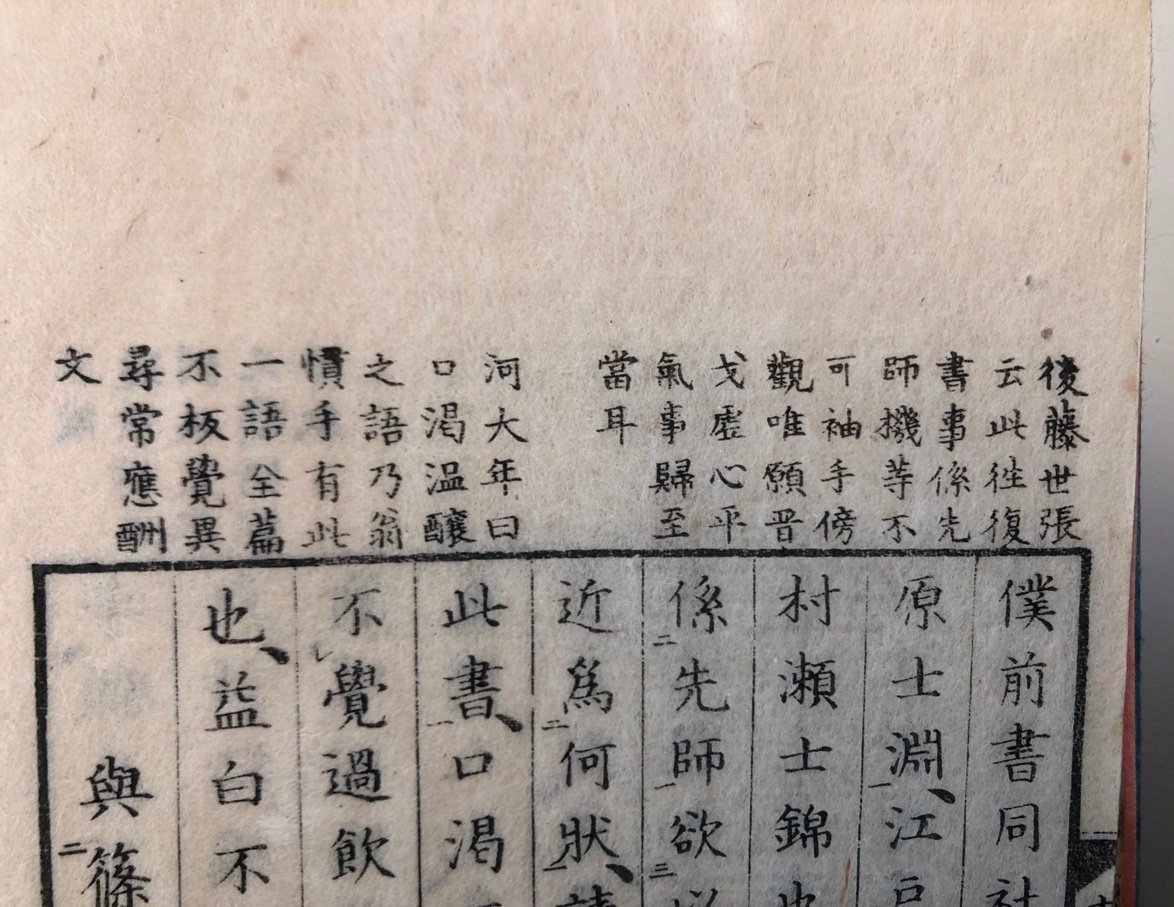 後藤世張
云此往復
書事係先
師機等不
可袖手傍
觀唯願晋
戈虚心平
氣事歸至
當耳
河大年曰
口渇温釀
之語乃翁
慣手有此
一語全篇
不板覺異
尋常應酬
文
僕前書同社
原士淵江
村瀬士錦也
係二先師一欲三以
近爲二何狀一請
此書一口渇
不覺過飲
也盆白不
與二篠